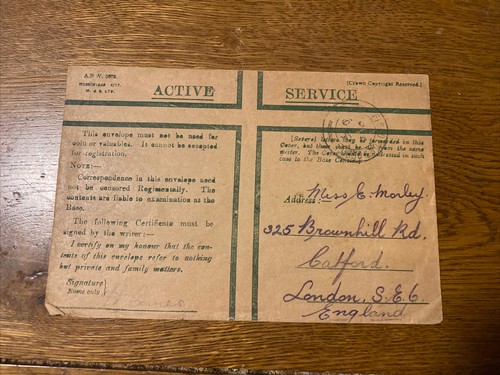 ACTIVE SERVICE
[Crown Copyright Reserved.]
This envelope must not be used for
coin or valuables. It cannot be accepted
for registration.
NOTE:—
Correspondence in this envelope need
not be censored Regimentally. The
contents are liable to examination at the
Base.
The following Certificate must be
signed by the writer:—
I certify on my honour that the con-
tents of this envelope refer to nothing
but private and family matters.
Signature
Name only
may be forwarded in this
Cover, but these must be
the name
writer. The Cover should be addressed in such
case to the Base Censor.
Address:—
Miss E. Morley.
325 Brownhill Rd.
Catford.
London, S.E.6.
England.